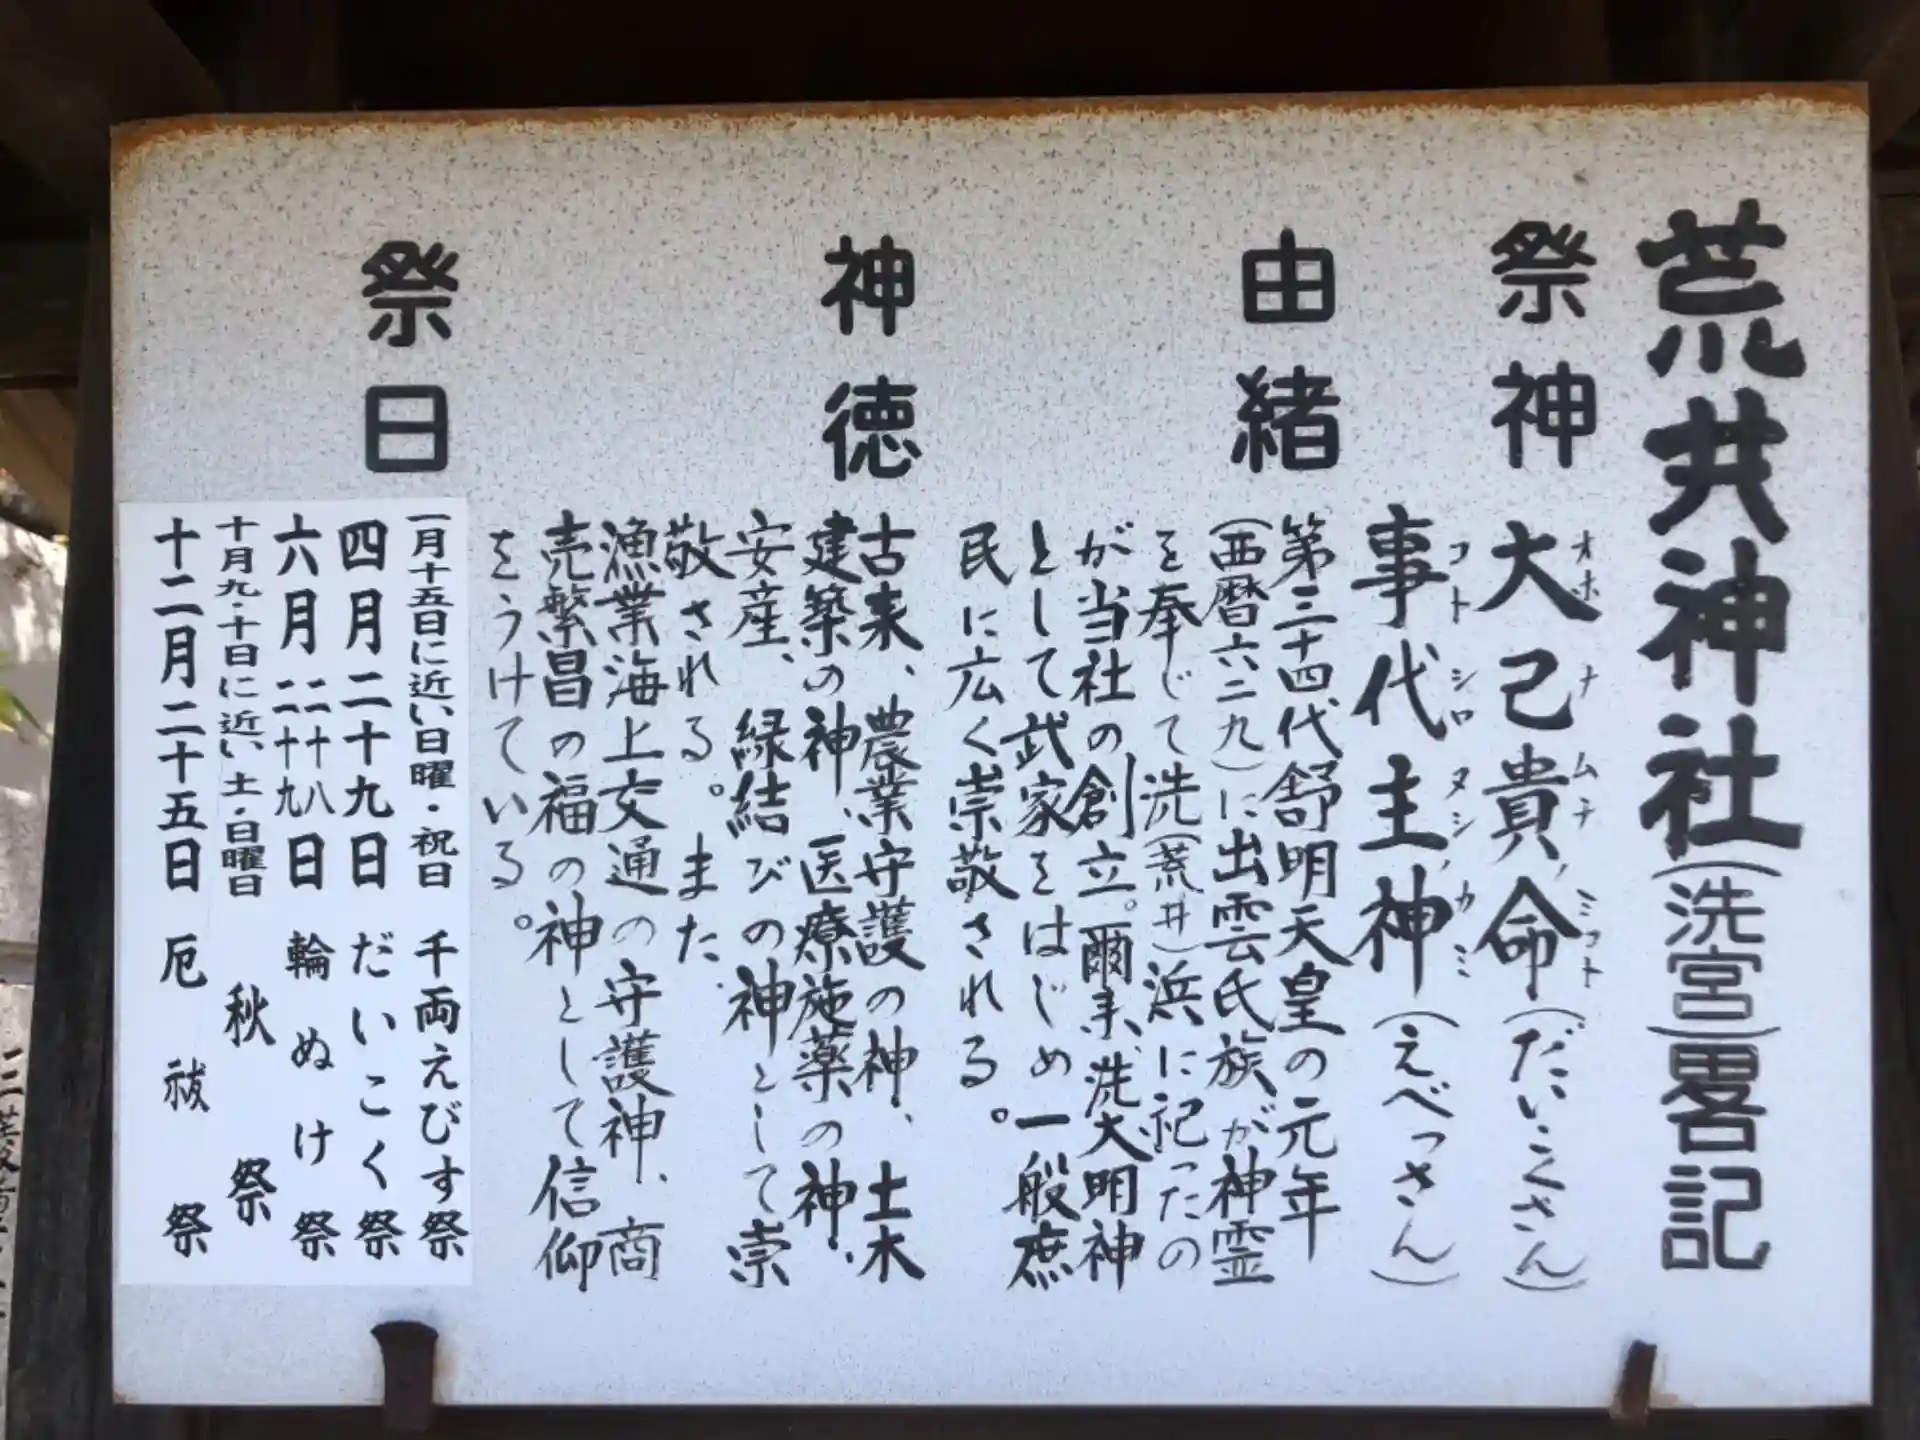 荒井神社(洗宮)畧記
祭神 大己貴命(だいこくさん)
オホナムチノミコト
事代主神(えべっさん)
コトシロヌシノカミ
由緒 第三十四代舒明天皇の元年
(西暦六二九)に出雲氏族が神霊
を奉じて洗(荒井)浜に祀ったの
が当社の創立。爾来、洗大明神
として武家をはじめ一般庶
民に広く崇敬される。
神徳 古来、農業守護の神、土木
建築の神、医療施薬の神、
安産、縁結びの神として崇
敬される。また
漁業海上交通の守護神、商
売繁昌の福の神として信仰
をうけている。
祭日 一月十五日に近い日曜・祝日 千両えびす祭
四月二十九日 だいこく祭
六月二十八二十九日 輪ぬけ祭
十月九・十日に近い土・日曜日 秋祭
十二月二十五日 厄祓祭